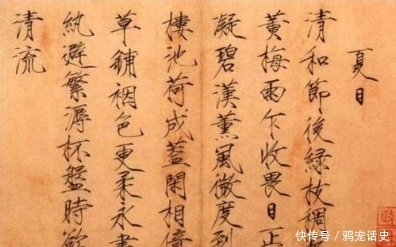 夏日
清和節後綠枝稠
黃梅雨乍收畏日正
凝碧漢薰風微度到
樓池荷成蓋閑相倚
草鋪裀色更柔永晝
紈避繁溽杯盤時欲
清流
快传号/鸦宠话史